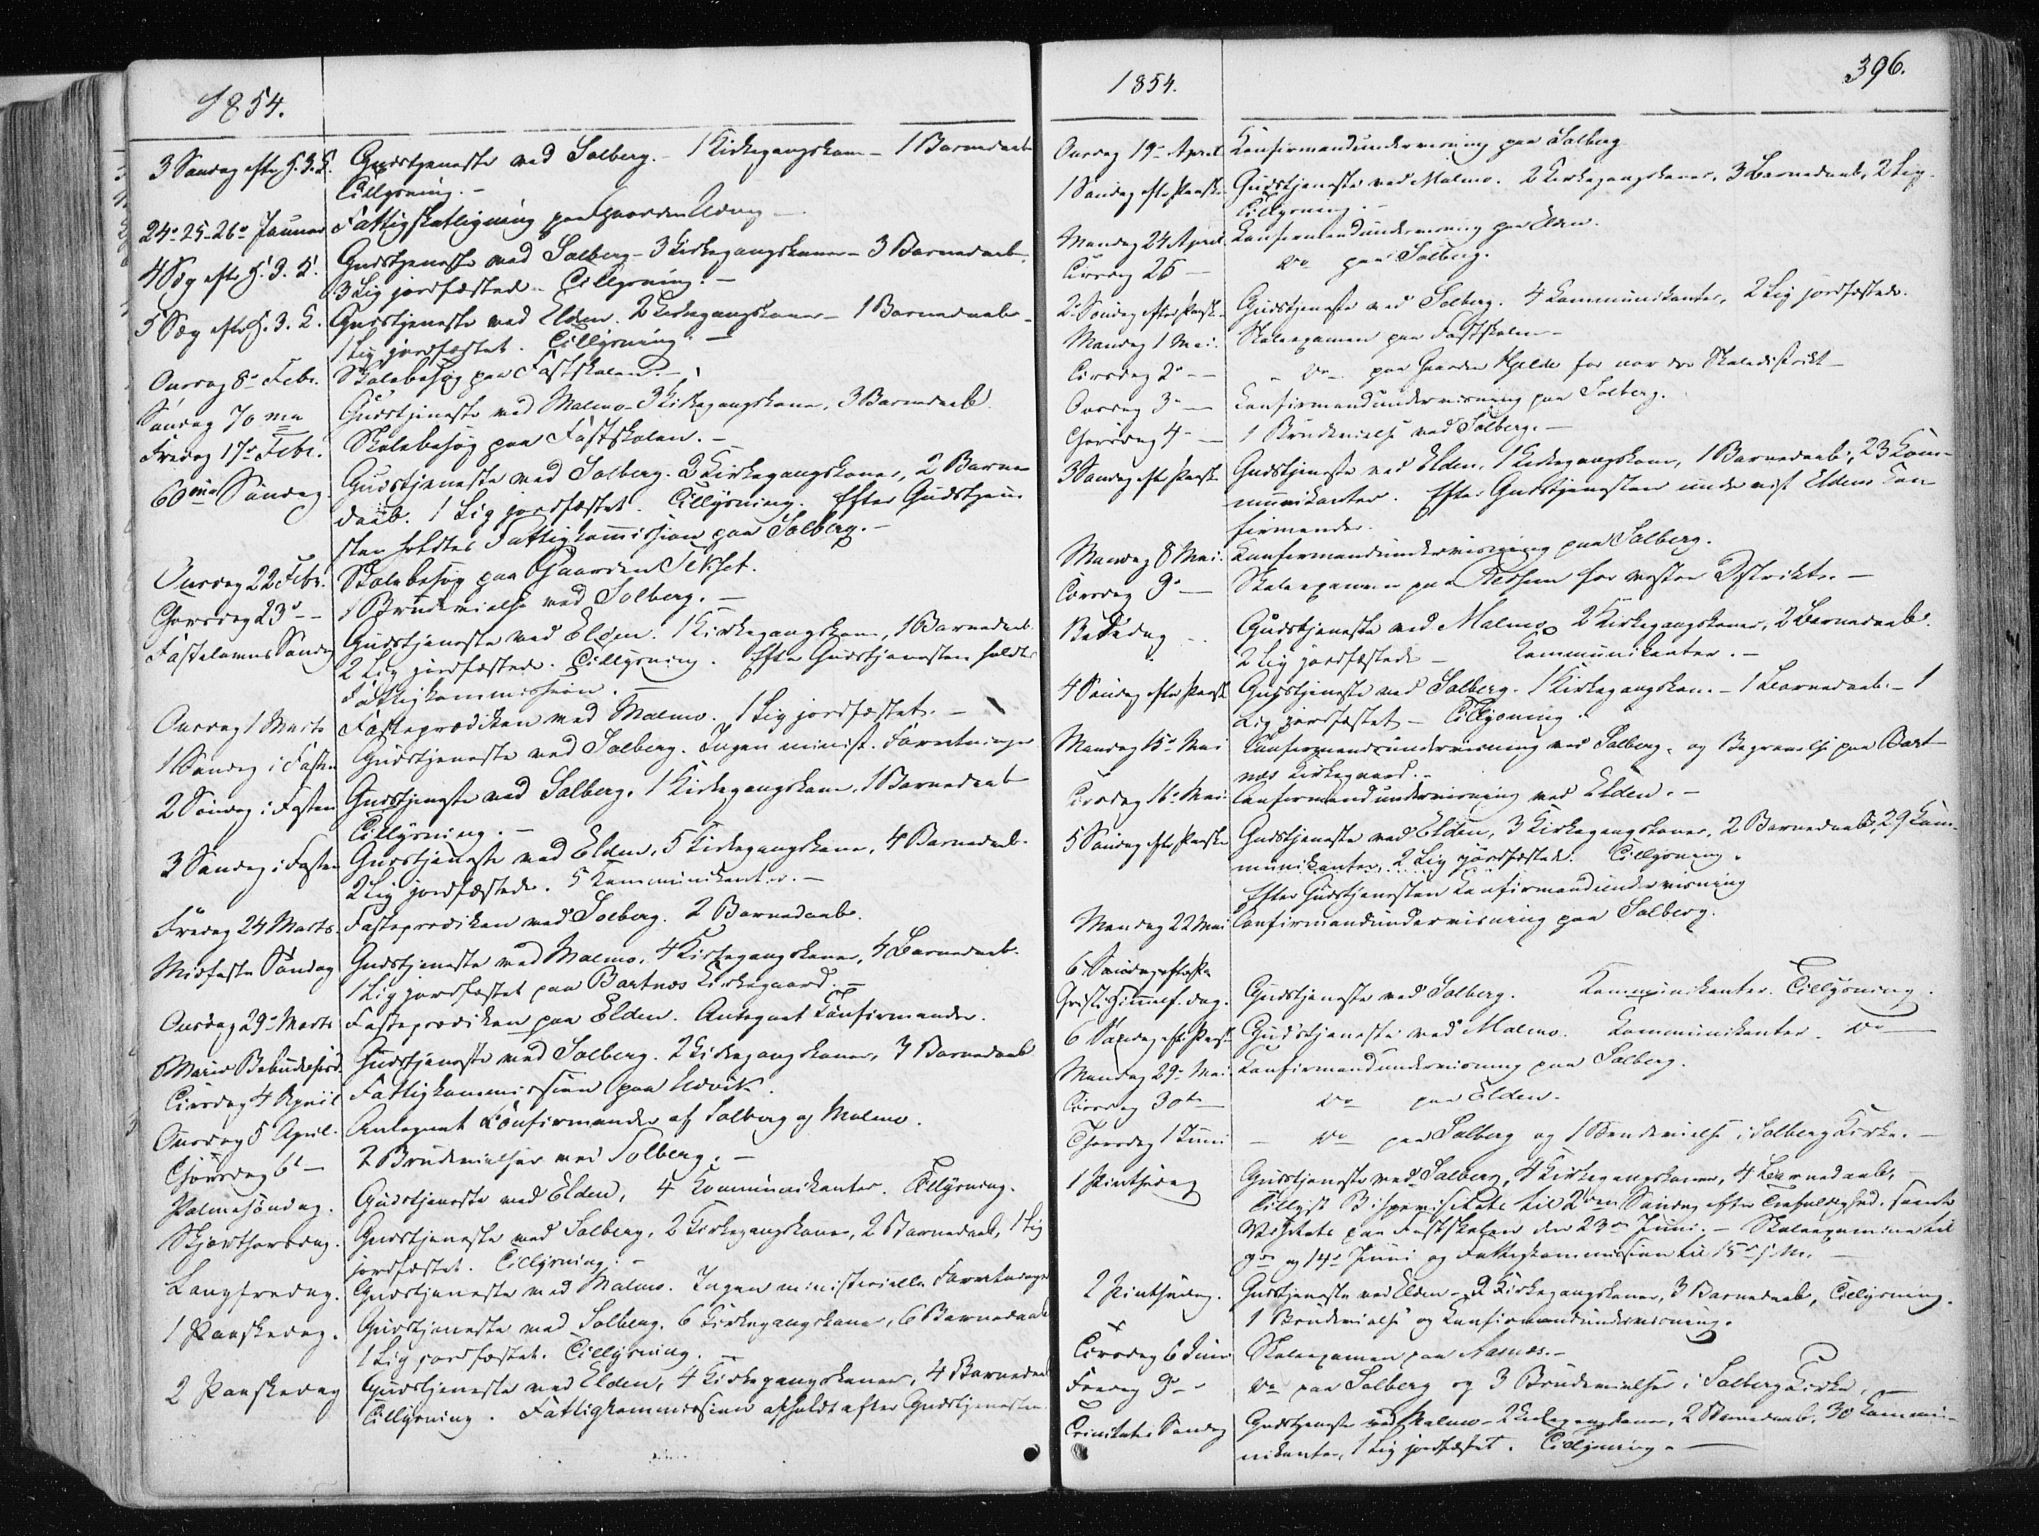 1854.
3 Søndag efter H. 3. K. Gudstjeneste ved Solberg. - 1 Kirkegangskone - 1 Barnedaab
Tillysning. -
24de 25-26de Januar Fattigskatligning paa Gaarden
4 Søg efter H. 3. K. Gudstjeneste ved Solberg - 3 Kirkegangskoner - 3 Barnedaab.
3 Lig jordfæstede - Tillysning. -
5 Søg efter H. 3. K. Gudstjeneste ved Elden. 2 Kirkegangskoner - 1 Barnedaab -
1 Lig jordfæstet. Tillysning. -
Onsdag 8de Febr. Skolebesøg paa Fastskolen -
Søndag 70 ma Gudstjeneste ved Malmo - 3 Kirkegangskoner, 3 Barnedaab.
Fredag 17de Febr. Skolebesøg paa Fastskolen. -
60 ma Søndag Gudstjeneste ved Solberg. 2 Kirkegangskoner, 2 Barne
daab. 1 Lig jordfæstet. Tillysning. Efter Gudstjene
sten holdtes Fattigkommission paa Solberg. -
Onsdag 22 Febr. Skolebesøg paa Gaarden Sexset.
Thorsdag 23de -- 1 Brudevielse ved Solberg. -
Fastelavns Søndag Gudstjeneste ved Elden. 1 Kirkegangskone, 1 Barnedaab.
2 Lig jordfæstede. Tillysning. Efter Gudstjenesten holdtes
Fattigkommission. -
Onsdag 1 Marts Fasteprædiken ved Malmo. 1 Lig jordfæstet. -
1 Søndag i Fasten Gudstjeneste ved Solberg. Ingen minist. Forretninger
2 Søndag i Fasten Gudstjeneste ved Solberg. 1 Kirkegangskone, 1 Barnedaab
Tillysning. -
3 Søndag i Fasten Gudstjeneste ved Elden, 5 Kirkegangskoner, 4 Barnedaab.
2 Lig jordfæstede. 5 Kommunikanter. -
Fredag 24 Marts. Fasteprædiken ved Solberg. 2 Barnedaab.
Midfaste Søndag Gudstjeneste ved Malmo, 4 Kirkegangskoner, 4 Barnedaab.
1 Lig jordfæstet paa Bartnæs Kirkegaard. -
Onsdag 29de Marts Fasteprædiken paa Elden. Antegnet Konfirmander.
Mariæ Bebudelsesd. Gudstjeneste ved Solberg. 2 Kirkegangskoner, 3 Barnedaab
Tirsdag 4 April Fattigkommission paa Utvik.
Onsdag 5 April. Antegnet Konfirmander af Solberg og Malmo.
Thorsdag 6te - 2 Brudevielser ved Solberg. -
Palmesøndag. Gudstjeneste ved Elden, 4 Kommunikanter. Tillysning.
Skjærthorsdag. Gudstjeneste ved Solberg, 2 Kirkegangskoner, 2 Barnedaab, 1 Lig
jordfæstet. Tillysning. -
Langfredag. Gudstjeneste ved Malmo. Ingen ministerielle Forretninger
1 Paaskedag. Gudstjeneste ved Solberg. 6 Kirkegangskoner, 6 Barnedaab
1 Lig jordfæstet. Tillysning. -
2 Paaskedag Gudstjeneste ved Elden, 4 Kirkegangskoner, 4 Barnedaab
Tillysning. Fattigkommission afholdt efter Gudstjenesten.
1854. 396.
Onsdag 19de April Konfirmandundervisning paa Solberg
1 Søndag efter Paaske Gudstjeneste ved Malmo. 2 Kirkegangskoner, 3 Barnedaab, 2 Lig.
Tillysning. -
Mandag 24 April Konfirmandundervisning paa Elden.
Tirsdag 25 - do paa Solberg.
2 Søndag efter Paaske Gudstjeneste ved Solberg. 4 Kommunikanter, 2 Lig jordfæstede.
Mandag 1 Mai. Skoleexamen paa Fastskolen -
Tirsdag 2de - - do - paa Gaarden Hjelde for Skoledistrikt -
Onsdag 3de - Konfirmandundervisning paa Solberg.
Thorsdag 4de - 1 Brudevielse ved Solberg. -
3 Søndag eft Paaske Gudstjeneste ved Elden, 1 Kirkegangskone, 1 Barnedaab, 23 Kom-
munikanter. Efter Gudstjenesten undervist Eldens Kon-
firmander.
Mandag 8 Mai. Konfirmandundervisning paa Solberg.
Tirsdag 9de - Skoleexamen paa for vestre Distrikt. -
Bededag - Gudstjeneste ved Malmo, 2 Kirkegangskoner, 2 Barnedaab.
2 Lig jordfæstede - Kommunikanter. -
4 Søndag efter Paaske Gudstjeneste ved Solberg. 1 Kirkegangskone - 1 Barnedaab - 1
Lig jordfæstet - Tillysning.
Mandag 15de Mai Konfirmandundervisning ved Solberg, og Begravelse paa Bart
næs Kirkegaard. -
Tirsdag 16de Mai Konfirmandundervisning ved Elden. -
5 Søndag efter Paaske Gudstjeneste ved Elden, 3 Kirkegangskoner, 2 Barnedaab, 29 Kom-
munikanter, 2 Lig jordfæstede. Tillysning.
Efter Gudstjenesten Konfirmandundervisning
Mandag 22 Mai Konfirmandundervisning paa Solberg.
6 Søndag efter Pa
Christi Himmelf. dag. Gudstjeneste ved Solberg. Kommunikanter. Tillysning.
6 Søndag eft. Paaske Gudstjeneste ved Malmo. Kommunikanter. do -
Mandag 29de Mai Konfirmandundervisning paa Solberg.
Tirsdag 30te - do paa Elden.
Thorsdag 1 Juni - do paa Solberg og 1 Brudevielse i Solberg Kirke. -
1 Pintsedag Gudstjeneste ved Solberg, 4 Kirkegangskoner, 4 Barnedaab, -
Tillyst Bispevisitats til 2den Søndag efter Trefoldighed, samt
Visitats paa Fastskolen den 23de Juni. - Skoleexamina til
9de og 14de Juni og Fattigkommission til 15de s. M. -
2 Pintsedag. Gudstjeneste ved Elden - 2 Kirkegangskoner, 3 Barnedaab, Tillysning.
1 Brudevielse og Konfirmandundervisning.
Tirsdag 6 Juni Skoleexamen paa Aasnes. -
Fredag 9de - do paa Solberg og 3 Brudevielser i Solberg Kirke
Trinitatis Søndag Gudstjeneste ved Malmo - 2 Kirkegangskoner, 2 Barnedaab. 30 Kommu-
nikanter, 1 Lig jordfæstet. Tillysning. -